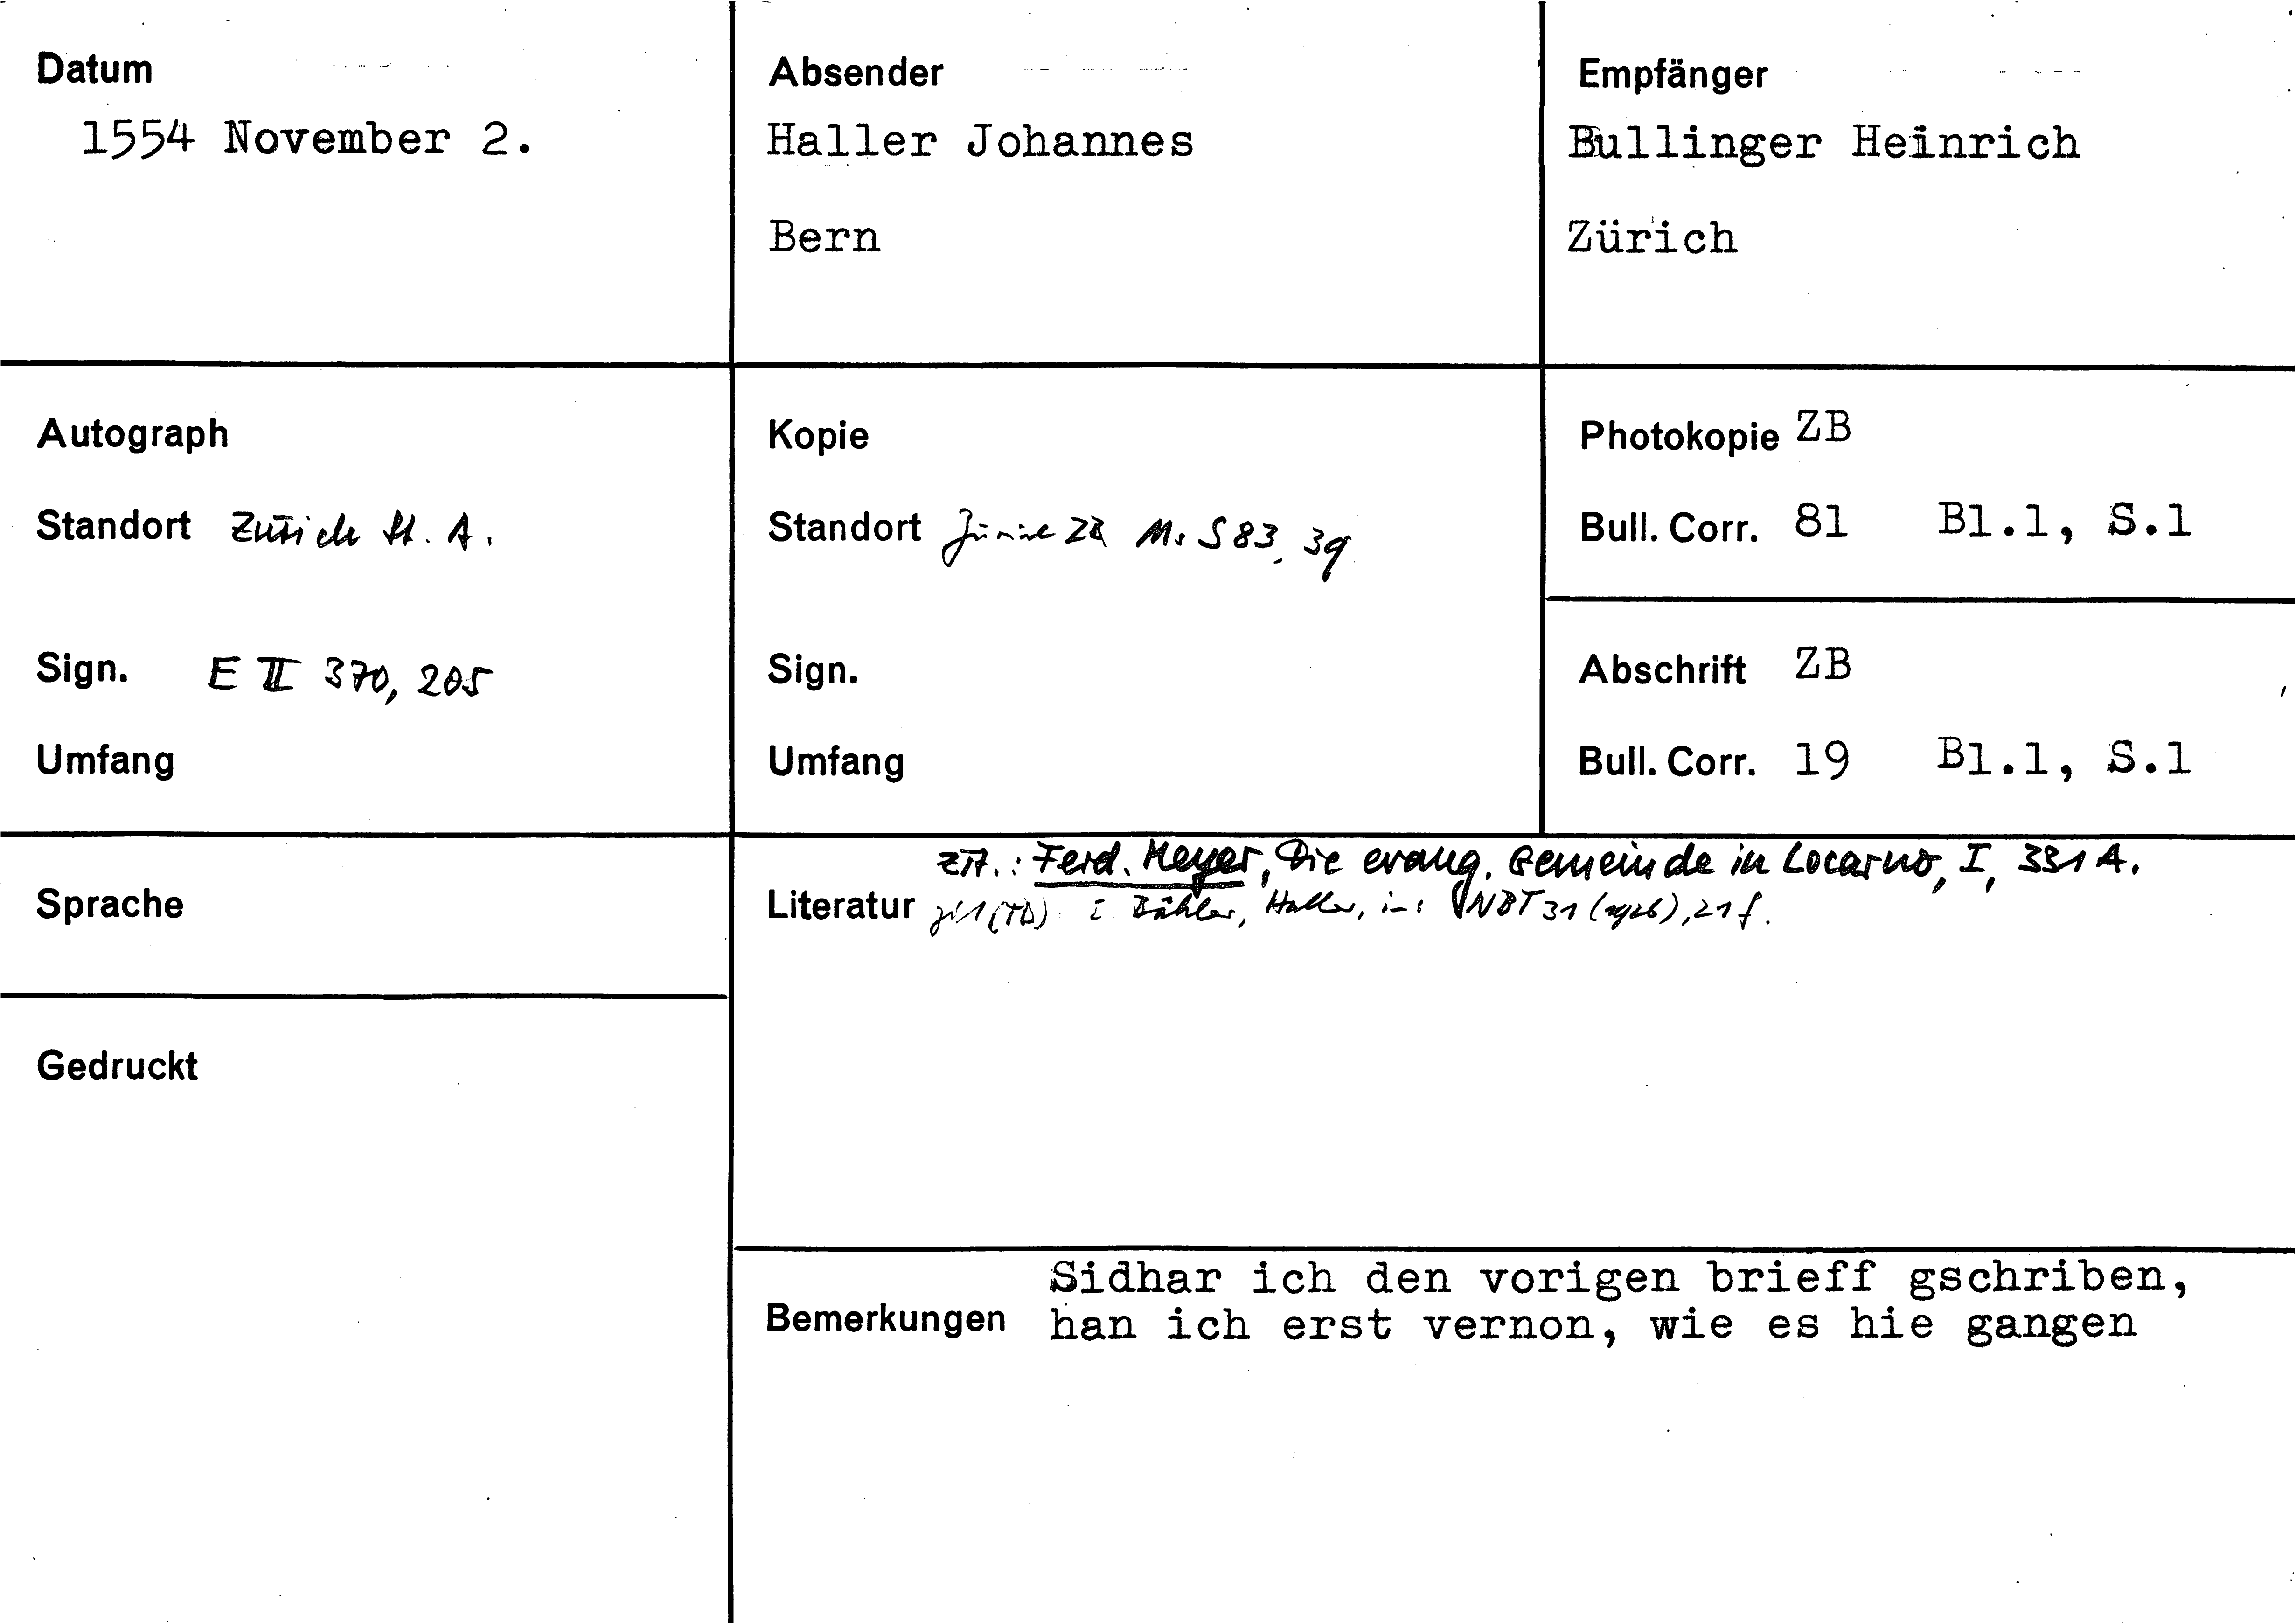 Datum
1554 November 2.
Absender
Haller Johannes
Bern
Empfänger
Bullinger Heinrich
Zürich
Autograph
Standort Zürich St. A.
Sign. E II 370, 205
Umfang
Kopie
Standort Zürich ZB Ms S 83, 39
Sign.
Umfang
Photokopie ZB
Bull. Corr. 81 Bl.1, S.1
Abschrift ZB
Bull. Corr. 19 Bl.1, S.1
Sprache
Gedruckt
zit.: Ferd. Meyer, Die evang. Gemeinde in Locarno, I, 331 A.
Literatur zit (TD) Bähler, Haller, in: NBT 31 (1926), 21 f.
Bemerkungen
Sidhar ich den vorigen brieff gschriben,
han ich erst vernon, wie es hie gangen